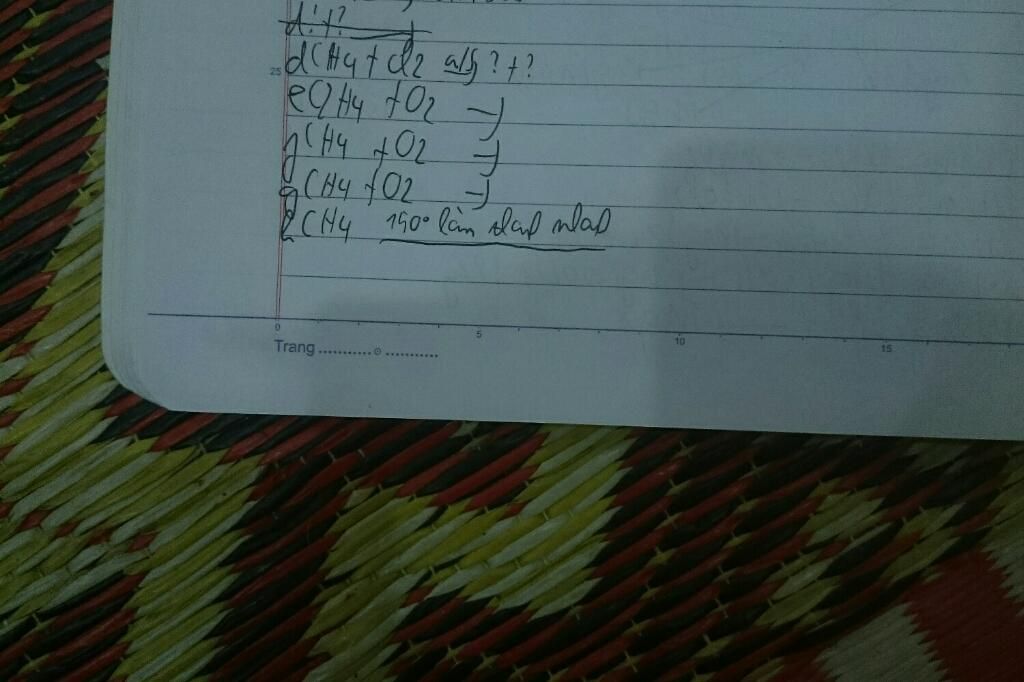 d ? + ?
25
dCH4 + Cl2 a/s ? + ?
eC2H4 + O2 →
fCH4 + O2 →
gCH4 + O2 →
CH4 150° làm
0 5 10 15
Trang ........... ...........